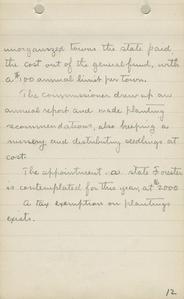 unorganized towns the state paid
the cost out of the general fund, with
a $100 annual limit per town.
The commissioner drew up an
annual report and made planting
recommendations, also keeping a
nursery and distributing seedlings at
cost.
The appointment of a state Forester
is contemplated for this year, at $2000
A tax exemption on plantings
exists.
12